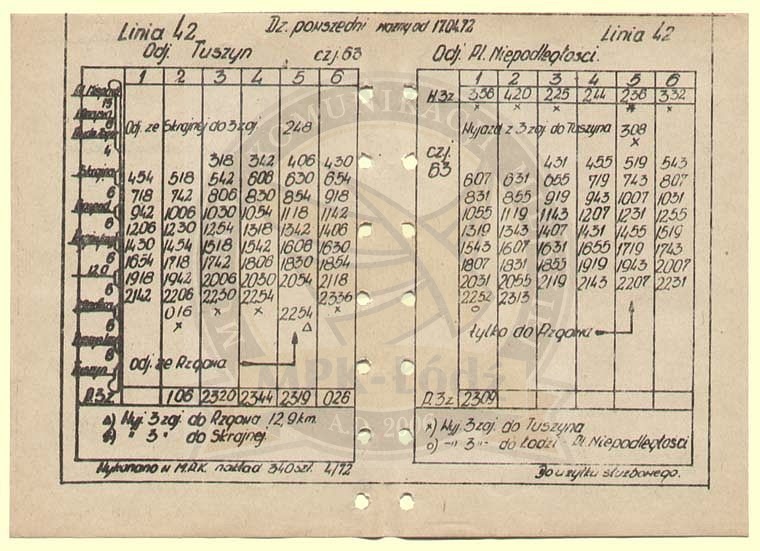 Linia 42
Dz. powszedni ważny od 17.04.72
Linia 42
Odj. Tuszyn
czj. 63
Odj. Pl. Niepodległości.
1 2 3 4 5 6
Odj. ze Skrajnej do 3 zaj. 248
318 342 406 430
454 518 542 606 630 654
718 742 806 830 854 918
942 1006 1030 1054 1118 1142
1206 1230 1254 1318 1342 1406
1430 1454 1518 1542 1606 1630
1654 1718 1742 1806 1830 1854
1918 1942 2006 2030 2054 2118
2142 2206 2230 2254 2336
016 x x x 2254 x
x Δ
Odj. ze Rzgowa
D.3z 106 2320 2344 2319 026
Δ) Wyj. 3 zaj. do Rzgowa 12,9 km.
" 3 " do Skrajnej
Wykonano w M.P.K. nakład 340 szt. 4/72
1 2 3 4 5 6
W.3z 336 420 225 244 236 332
x x x x x x
Wyjazd z 3 zaj. do Tuszyna 308
x
czj. 63
431 455 519 543
607 631 655 719 743 807
831 855 919 943 1007 1031
1055 1119 1143 1207 1231 1255
1319 1343 1407 1431 1455 1519
1543 1607 1631 1655 1719 1743
1807 1831 1855 1919 1943 2007
2031 2055 2119 2143 2207 2231
2252 2313
o
tylko do Rzgowa
D.3z 2309
x) Wyj. 3 zaj. do Tuszyna
o) -"- 3 "- do Łodzi - Pl. Niepodległości
Do użytku służbowego.
MPK-Łódź